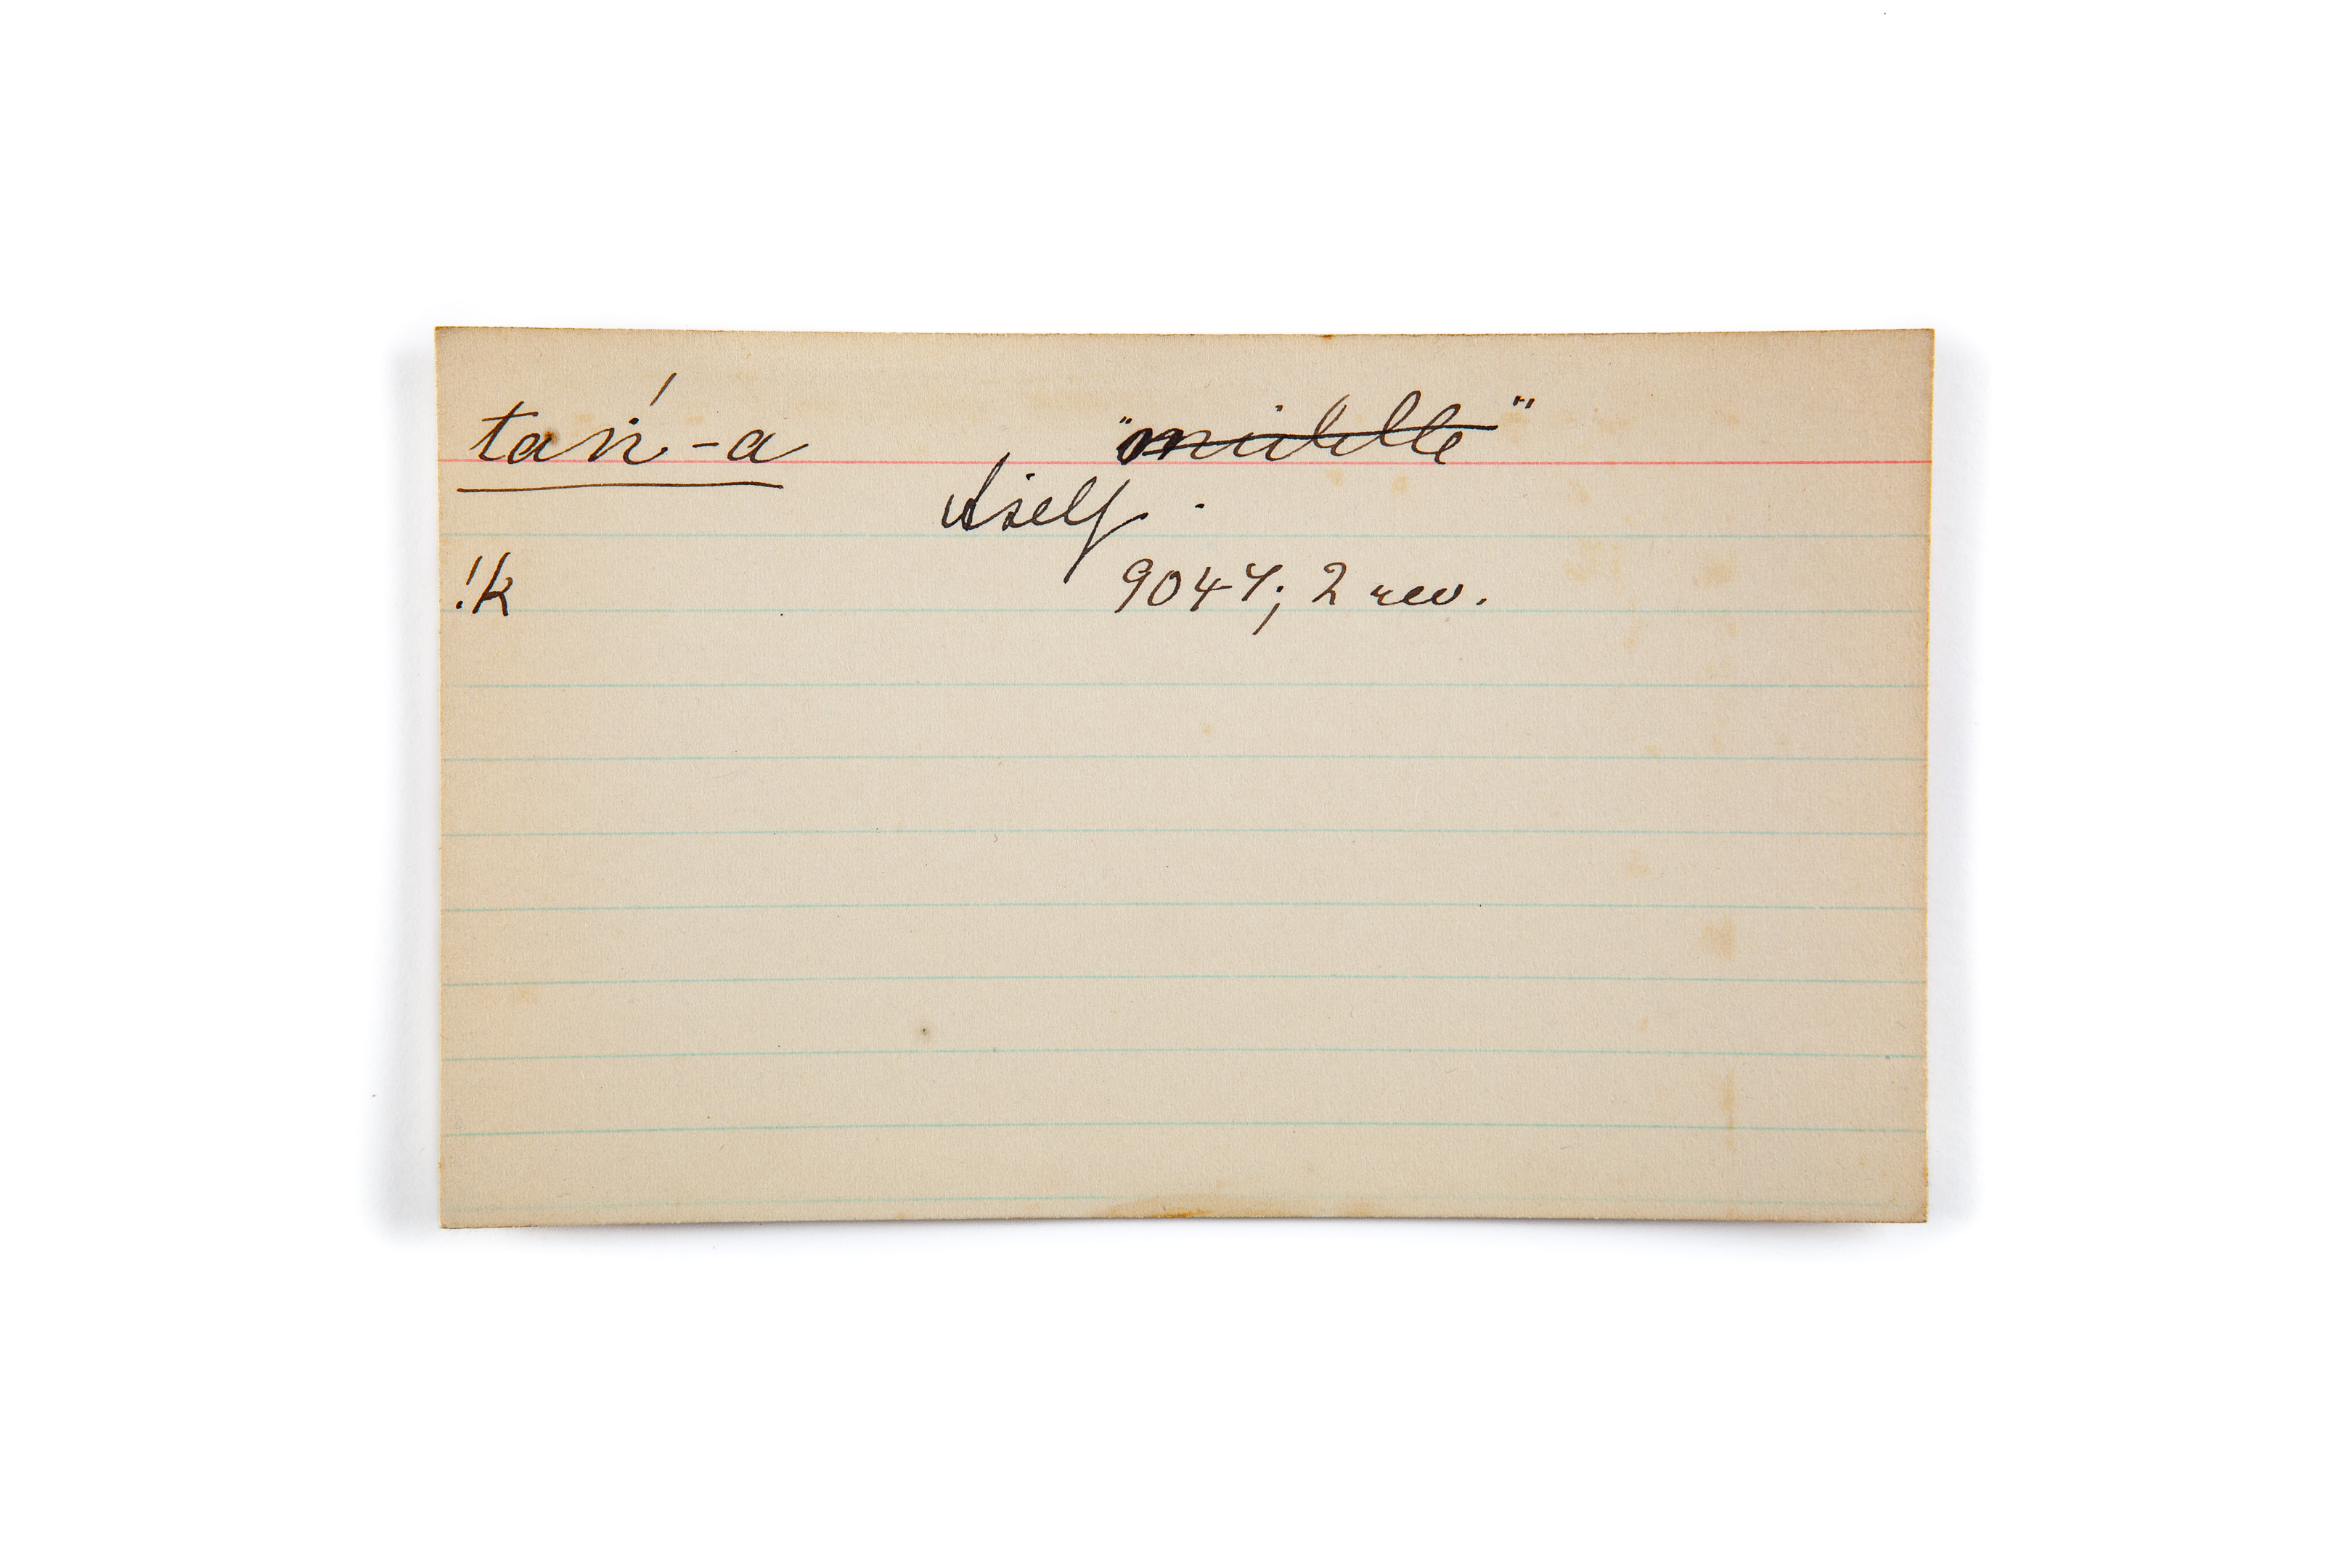 tań-a "middle"
itself.
!k 9047; 2 rev.